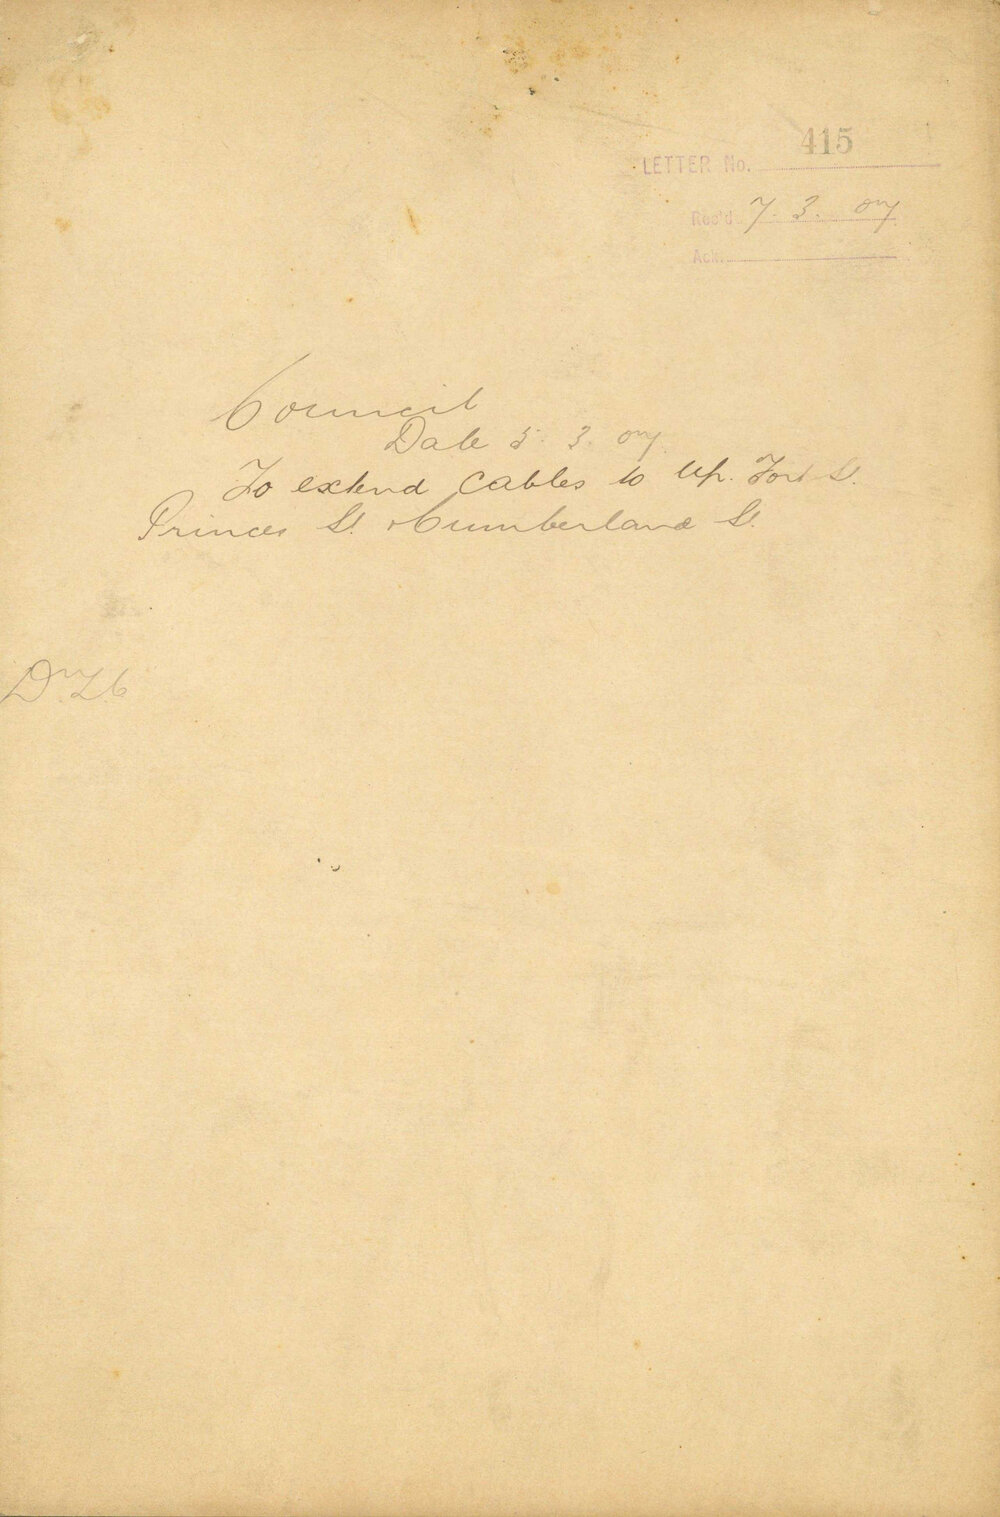 415
LETTER No.
Rec'd 7. 3. 07
Ack.
Council
Date 5. 3. 07
To extend cables to Up. Fort St.
Princes St. & Cumberland St.